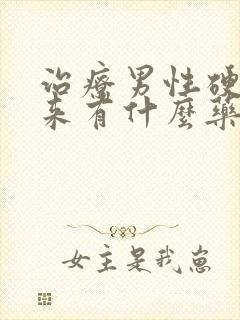 治療男性硬
來有什麼藥
女主是我崽